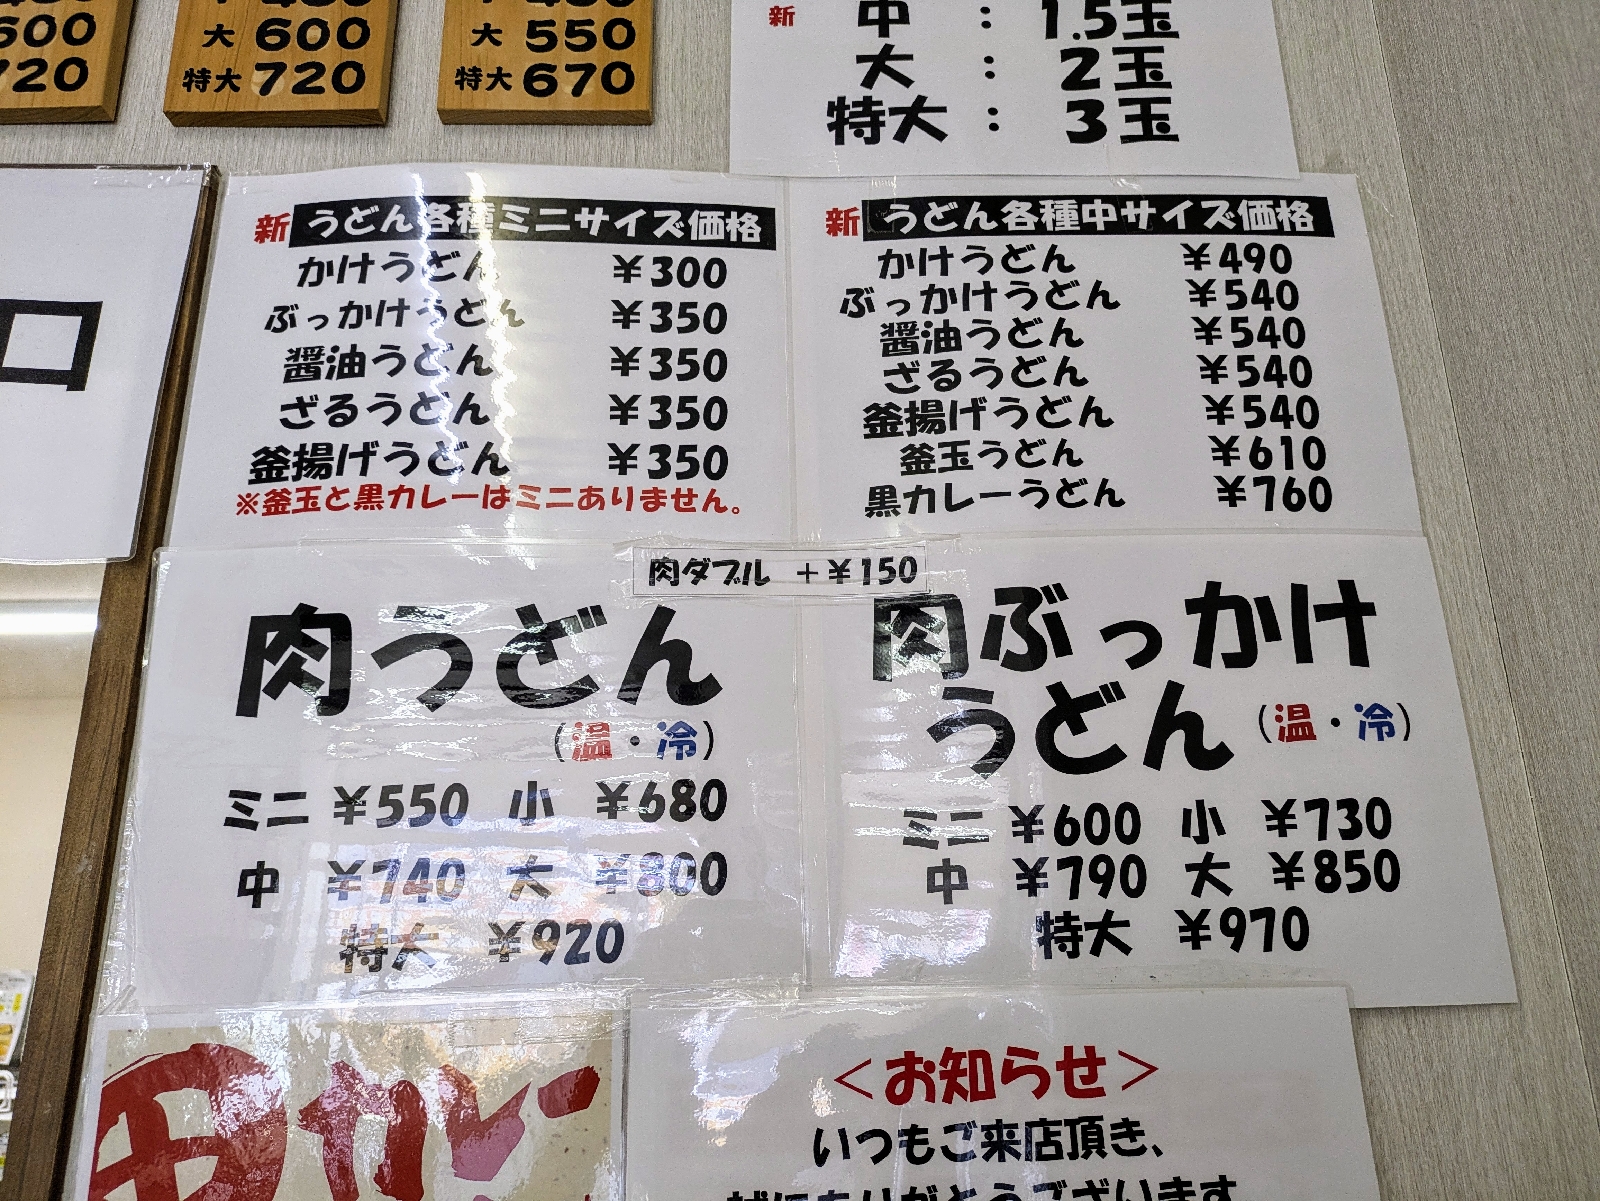 600
720
大 600
特大 720
大 550
特大 670
新 中 : 1.5玉
大 : 2玉
特大 : 3玉
新 うどん各種ミニサイズ価格
かけうどん ¥300
ぶっかけうどん ¥350
醤油うどん ¥350
ざるうどん ¥350
釜揚げうどん ¥350
※釜玉と黒カレーはミニありません。
新 うどん各種中サイズ価格
かけうどん ¥490
ぶっかけうどん ¥540
醤油うどん ¥540
ざるうどん ¥540
釜揚げうどん ¥540
釜玉うどん ¥610
黒カレーうどん ¥760
口
肉ダブル +¥150
肉うどん
(温・冷)
ミニ ¥550 小 ¥680
中 ¥740 大 ¥800
特大 ¥920
肉ぶっかけ
うどん (温・冷)
ミニ ¥600 小 ¥730
中 ¥790 大 ¥850
特大 ¥970
<お知らせ>
いつもご来店頂き、
誠にありがとうございます